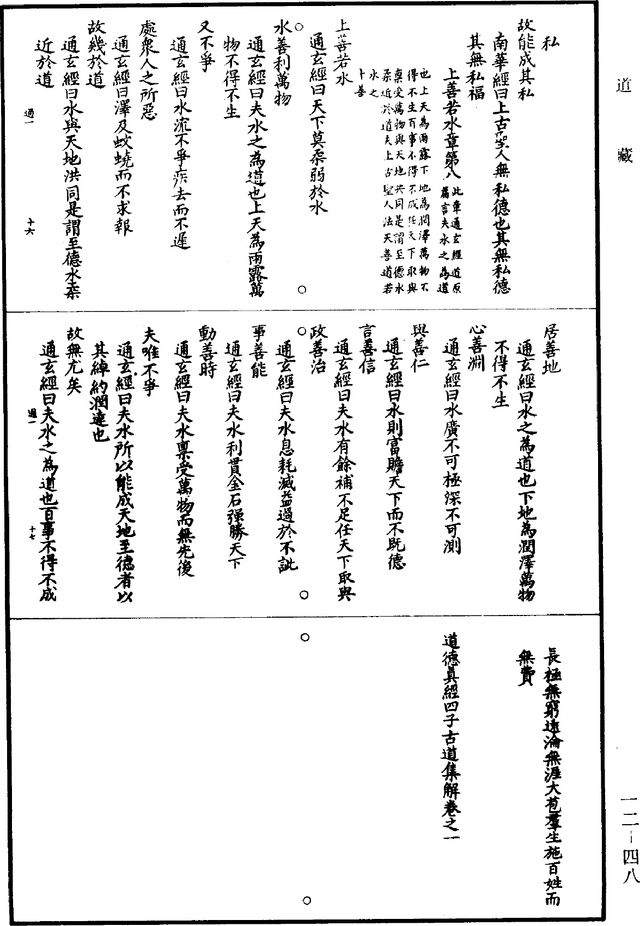 道藏
私
故能成其私
南華經曰上古聖人無私德也其無私德
其無私福
上善若水章第八
此章通玄經道原
篇言夫水之為道
也上天為雨露下地為潤澤萬物不
得不生百事不得不成任天下取與
稟受萬物與天地共同是謂至德水
柔近於道夫上古聖人法天善道若
水之
卜善
上善若水
通玄經曰天下莫柔弱於水
水善利萬物
通玄經曰夫水之為道也上天為雨露萬
物不得不生
又不爭
通玄經曰水流不爭疾去而不遲
處衆人之所惡
通玄經曰澤及蚑蟯而不求報
故幾於道
通玄經曰水與天地洪同是謂至德水柔
近於道
過一 十六
居善地
通玄經曰水之為道也下地為潤澤萬物
不得不生
心善淵
通玄經曰水廣不可極深不可測
與善仁
通玄經曰水則富贍天下而不既德
言善信
通玄經曰夫水有餘補不足任天下取與
政善治
通玄經曰夫水息耗減益過於不訾
事善能
通玄經曰夫水利貫金石强勝天下
動善時
通玄經曰夫水稟受萬物而無先後
夫唯不爭
通玄經曰夫水所以能成天地至德者以
其綽約潤達也
故無尤矣
通玄經曰夫水之為道也百事不得不成
過一 十七
長極無窮遠淪無涯大苞羣生施百姓而
無費
道德真經四子古道集解卷之一
一二—四八